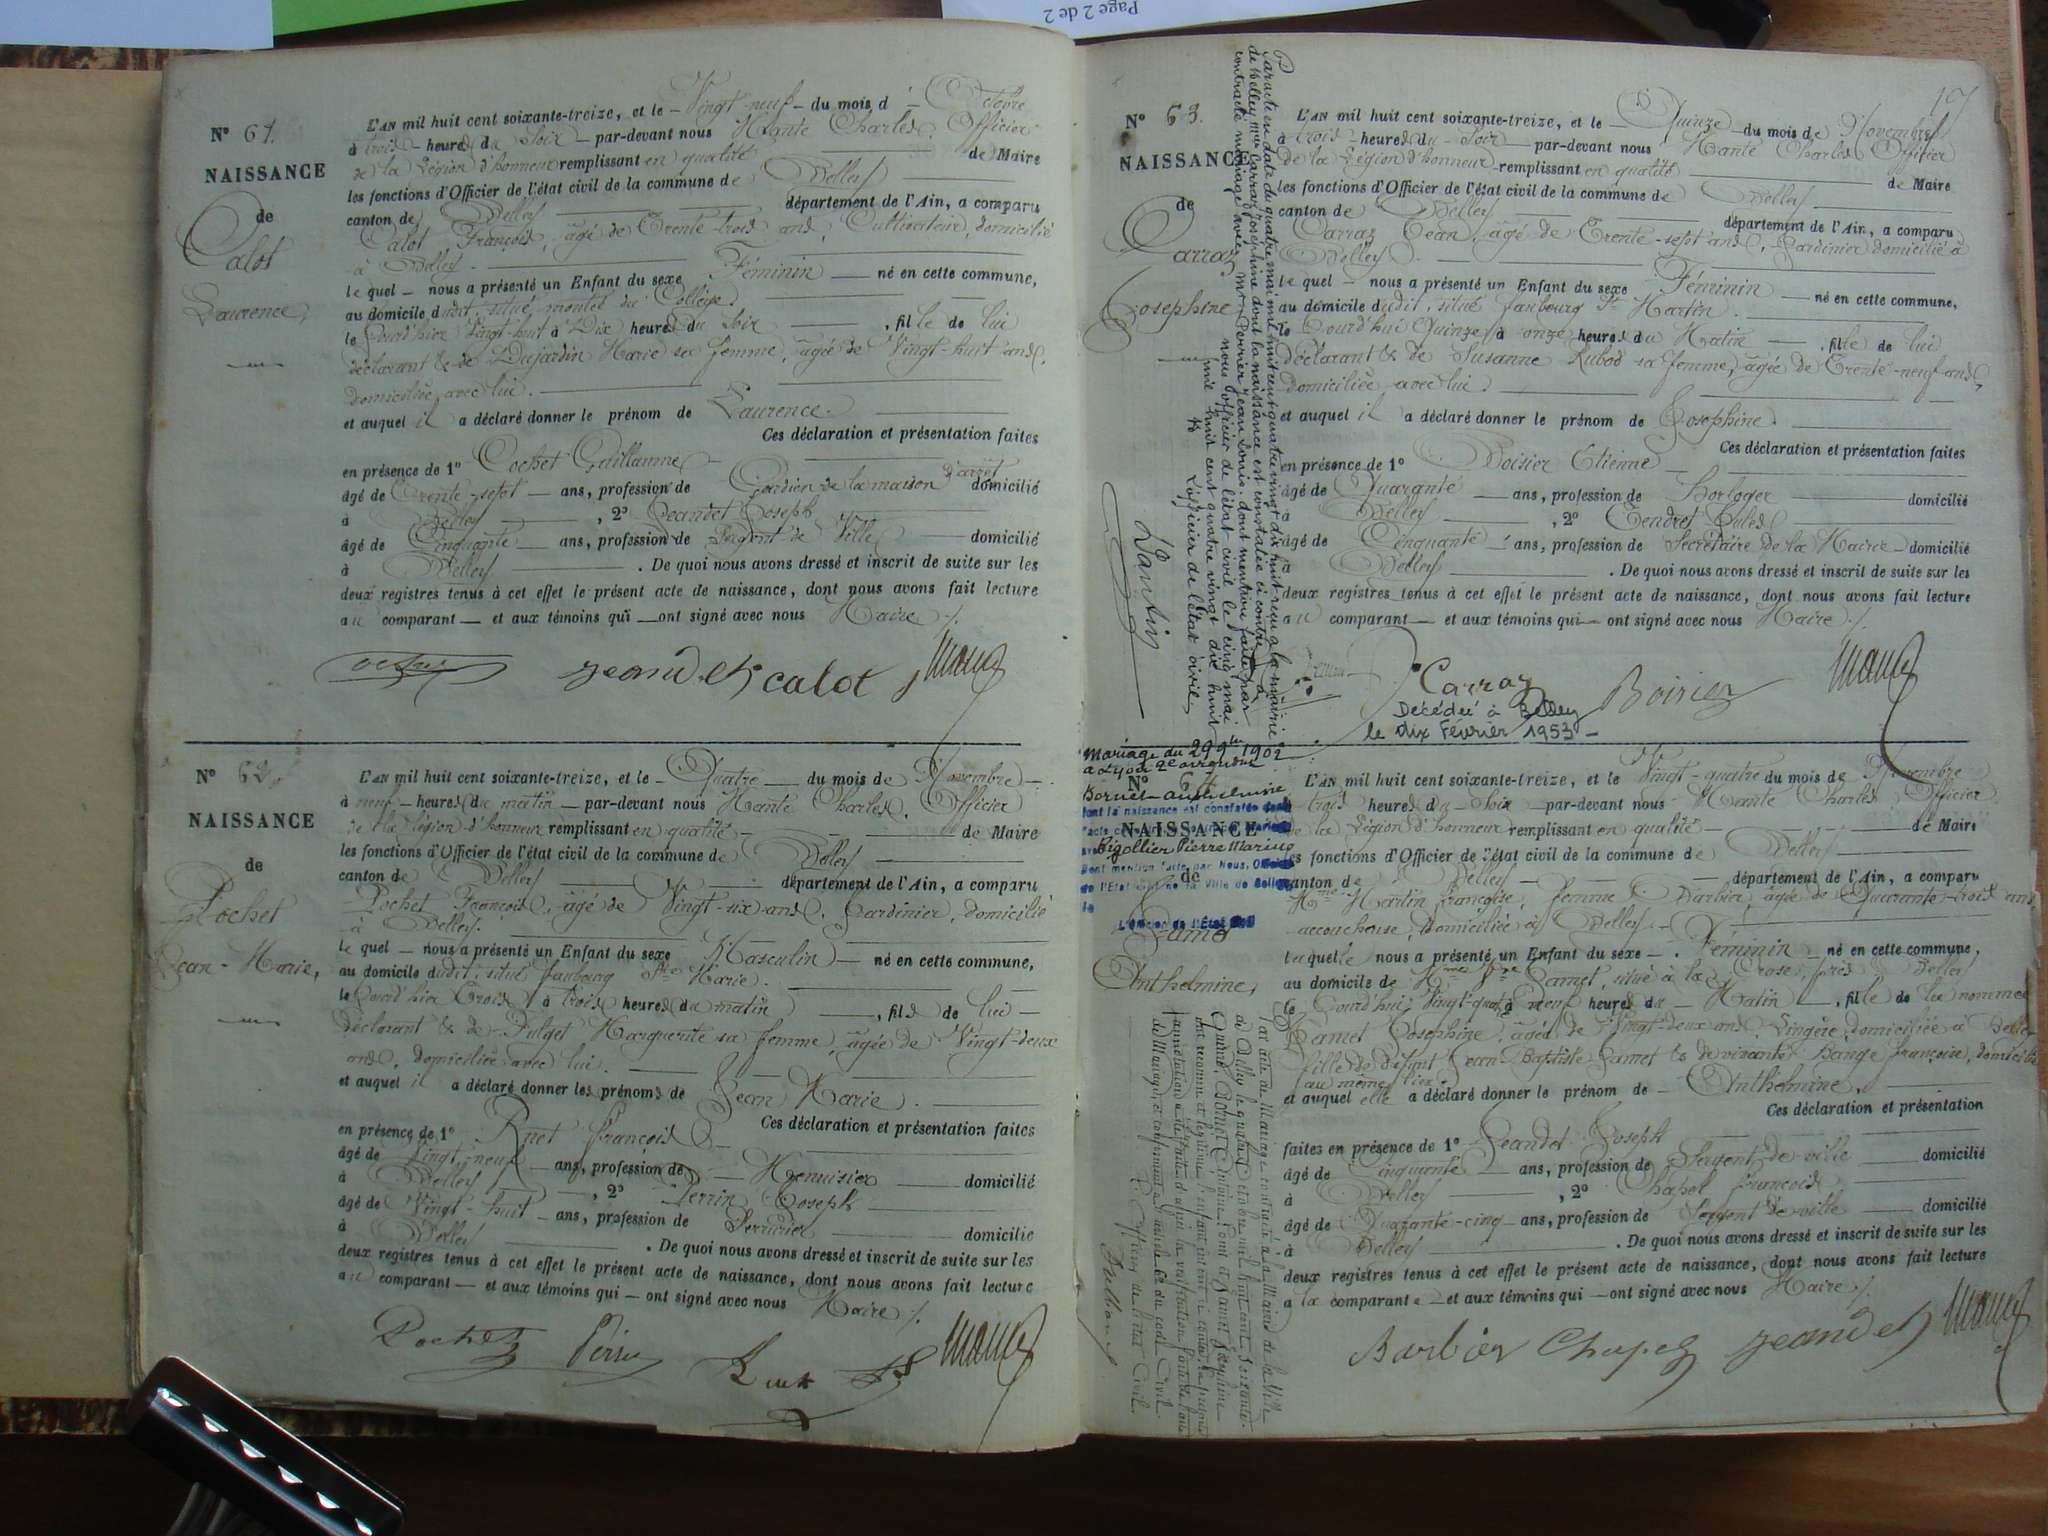 Page 2 de 2
Nº 61.
NAISSANCE
de
Calot
Laurence,
L'AN mil huit cent soixante-treize, et le Vingt-neuf du mois d'Octobre
à trois heures du Soir par-devant nous Mante Charles, Officier
de la Légion d'honneur remplissant en qualité de Maire
les fonctions d'Officier de l'état civil de la commune de Belley
canton de Belley département de l'Ain, a comparu
Calot, François, âgé de Trente-trois ans, Cultivateur, domicilié
à Belley.
le quel nous a présenté un Enfant du sexe Féminin né en cette commune,
au domicile dudit, situé montée du Collège.
le jourd'hier Vingt-huit à Dix heures du Soir, fille de lui
déclarant & de Dujardin Marie sa femme, âgée de Vingt-huit ans,
domiciliée avec lui.
et auquel il a déclaré donner le prénom de Laurence.
Ces déclaration et présentation faites
en présence de 1º Cochet Guillaume
âgé de Trente-sept ans, profession de Gardien de la maison d'arrêt domicilié
à Belley, 2º Jeandet Joseph
âgé de Cinquante ans, profession de Sergent de Ville domicilié
à Belley. De quoi nous avons dressé et inscrit de suite sur les
deux registres tenus à cet effet le présent acte de naissance, dont nous avons fait lecture
au comparant et aux témoins qui ont signé avec nous Maire ./.
jeandet calot Mante
Nº 62.
NAISSANCE
de
Pochet
Jean-Marie,
L'AN mil huit cent soixante-treize, et le Quatre du mois de Novembre
à neuf heures du matin par-devant nous Mante Charles, Officier
de la Légion d'honneur remplissant en qualité de Maire
les fonctions d'Officier de l'état civil de la commune de Belley
canton de Belley département de l'Ain, a comparu
Pochet François, âgé de Vingt-six ans, Jardinier, domicilié
à Belley.
le quel nous a présenté un Enfant du sexe Masculin né en cette commune,
au domicile dudit, situé faubourg Ste Marie.
le jourd'hier Trois à trois heures du matin, fils de lui
déclarant & de Pulget Marguerite sa femme, âgée de Vingt-deux
ans, domiciliée avec lui.
et auquel il a déclaré donner les prénoms de Jean Marie.
Ces déclaration et présentation faites
en présence de 1º François
âgé de Vingt-neuf ans, profession de Menuisier domicilié
à Belley, 2º Perrin Joseph
âgé de Vingt-huit ans, profession de Serrurier domicilié
à Belley. De quoi nous avons dressé et inscrit de suite sur les
deux registres tenus à cet effet le présent acte de naissance, dont nous avons fait lecture
au comparant et aux témoins qui ont signé avec nous Maire ./.
Pochet Perrin Mante
Nº 63.
NAISSANCE
de
Carraz
Josephine,
Par acte en date du quatre mai mil huit cent quatre vingt dix huit reçu à la mairie
de Belley, Mlle Carraz Josephine dont la naissance est constatée ci contre, a
contracté mariage avec Mr Poirier Jean Louis. dont mention faite par
nous officier de l'état civil le cinq mai
mil huit cent quatre vingt dix huit
L'officier de l'état civil,
Lantin
L'AN mil huit cent soixante-treize, et le Quinze du mois de Novembre
à trois heures du Soir par-devant nous Mante Charles, Officier
de la Légion d'honneur remplissant en qualité de Maire
les fonctions d'Officier de l'état civil de la commune de Belley
canton de Belley département de l'Ain, a comparu
Carraz Jean, âgé de Trente-sept ans, Jardinier domicilié à
Belley.
le quel nous a présenté un Enfant du sexe Féminin né en cette commune,
au domicile dudit, situé faubourg St Martin.
le jourd'hui Quinze à onze heures du Matin, fille de lui
déclarant & de Susanne Rubod sa femme, âgée de Trente-neuf ans,
domiciliée avec lui.
et auquel il a déclaré donner le prénom de Josephine.
Ces déclaration et présentation faites
en présence de 1º Boisier Etienne
âgé de Quarante ans, profession de Horloger domicilié
à Belley, 2º Tendret Jules
âgé de Cinquante ans, profession de Secrétaire de la Mairie domicilié
à Belley. De quoi nous avons dressé et inscrit de suite sur les
deux registres tenus à cet effet le présent acte de naissance, dont nous avons fait lecture
au comparant et aux témoins qui ont signé avec nous Maire ./.
Carraz Boisier Mante
Décédée à Belley
le dix Février 1953
Mariage du 29 9bre 1902
à Lyon 2e arrondt
Bornet Anthelmine
dont la naissance est constatée dans
l'acte
Pigollier Pierre Marius
Dont mention faite par Nous, Officier
de l'Etat Civil de la Ville de Belley
le
L'Officier de l'Etat Civil
Nº 64
NAISSANCE
de
Jamet
Anthelmine,
L'AN mil huit cent soixante-treize, et le Vingt-quatre du mois de Novembre
à trois heures du Soir par-devant nous Mante Charles Officier
de la Légion d'honneur remplissant en qualité de Maire
les fonctions d'Officier de l'état civil de la commune de Belley
canton de Belley département de l'Ain, a comparu
Mme Martin Françoise, femme Barbier, âgée de Quarante-trois ans
accoucheuse, domiciliée à Belley.
laquelle nous a présenté un Enfant du sexe Féminin né en cette commune,
au domicile de Mme Vve Jamet, situé à la Crose, près Belley
le jourd'hui Vingt-quatre à neuf heures du Matin, fille de la nommée
Jamet Josephine, âgée de Vingt-deux ans, Lingère, domiciliée à Belley
fille de défunt Jean Baptiste Jamet & de vivante Bange françoise, domiciliée
au même lieu.
et auquel elle a déclaré donner le prénom de Anthelmine.
Ces déclaration et présentation
faites en présence de 1º Jeandet Joseph
âgé de Cinquante ans, profession de Sergent de-ville domicilié
à Belley, 2º Chapel François
âgé de Quarante-cinq ans, profession de Sergent de-ville domicilié
à Belley. De quoi nous avons dressé et inscrit de suite sur les
deux registres tenus à cet effet le présent acte de naissance, dont nous avons fait lecture
à la comparante et aux témoins qui ont signé avec nous Maire ./.
Barbier Chapel jeandet Mante
Par acte de Mariage contracté à la Mairie de la Ville
de Belley le
L'Officier de l'état Civil,